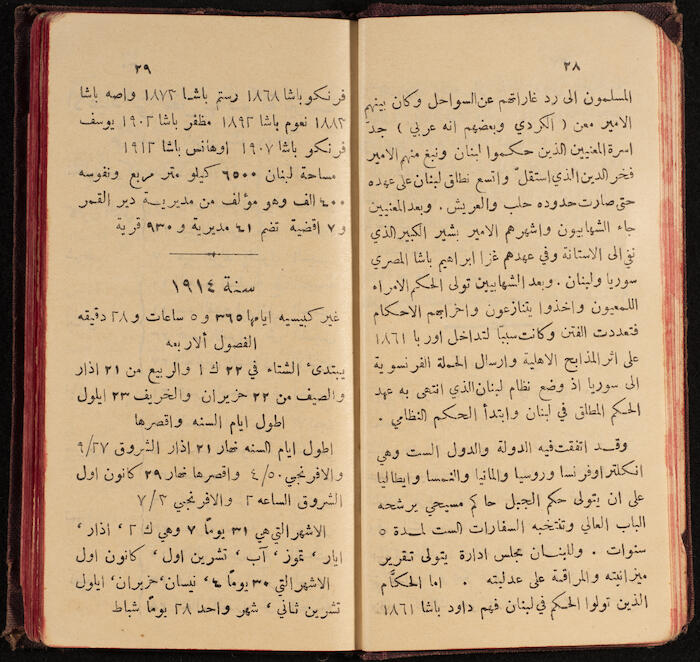 ٢٨
المسلمون الى رد غاراتهم عن السواحل وكان بينهم
الامير معن ( الكردي وبعضهم انه عربي ) جدّ
اسرة المعنيين الذين حكموا لبنان ونبغ منهم الامير
فخر الدين الذي استقلّ واتسع نطاق لبنان على عهده
حتى صارت حدوده حلب والعريش . وبعد المعنيين
جاء الشهابيون واشهرهم الامير بشير الكبير الذي
نفي الى الاستانة وفي عهدهم غزا ابراهيم باشا المصري
سوريا ولبنان . وبعد الشهابيين تولى الحكم الامراء
اللمعيون واخذوا يتنازعون واخراجهم الاحكام
فتعددت الفتن وكانت سببًا لتداخل اوربا ١٨٦١
على اثر المذابح الاهلية وارسال الحملة الفرنسوية
الى سوريا اذ وضع نظام لبنان الذي انتهى به عهد
الحكم المطلق في لبنان وابتدأ الحكم النظامي .
وقد اتفقت فيه الدولة والدول الست وهي
انكلترا وفرنسا وروسيا والمانيا والنمسا وايطاليا
على ان يتولى حكم الجبل حاكم مسيحي يرشحه
الباب العالي وتنتخبه السفارات الست لمدة ٥
سنوات . وللبنان مجلس ادارة يتولى تقرير
ميزانيته والمراقبة على عدليته . اما الحكّام
الذين تولوا الحكم في لبنان فهم داود باشا ١٨٦١
٢٩
فرنكو باشا ١٨٦٨ رستم باشا ١٨٧٢ واصه باشا
١٨٨٢ نعوم باشا ١٨٩٢ مظفر باشا ١٩٠٢ يوسف
فرنكو باشا ١٩٠٧ اوهانس باشا ١٩١٢
مساحة لبنان ٦٥٠٠ كيلو متر مربع ونفوسه
٤٠٠ الف وهو مؤلف من مديرية دير القمر
و٧ اقضية تضم ٤١ مديرية و ٩٣٠ قرية
سنة ١٩١٤
غير كبيسيه ايامها ٣٦٥ و٥ ساعات و٢٨ دقيقه
الفصول ألاربعه
يبتدئ الشتاء في ٢٢ ك ١ والربيع من ٢١ اذار
والصيف من ٢٢ حزيران والخريف ٢٣ ايلول
اطول ايام السنه واقصرها
اطول ايام السنه نهار ٢١ اذار الشروق ٩/٢٧
والافرنجي ٤/٥٠ واقصرها نهار ٢٩ كانون اول
الشروق الساعه ٢ والافرنجي ٧/٢
الاشهر التي هي ٣١ يومًا ٧ وهي ك ٢ ، اذار ،
ايار ، تموز ، آب ، تشرين اول ، كانون اول
الاشهر التي ٣٠ يومًا ٤ ، نيسان ، حزيران ، ايلول
تشرين ثاني ، شهر واحد ٢٨ يومًا شباط